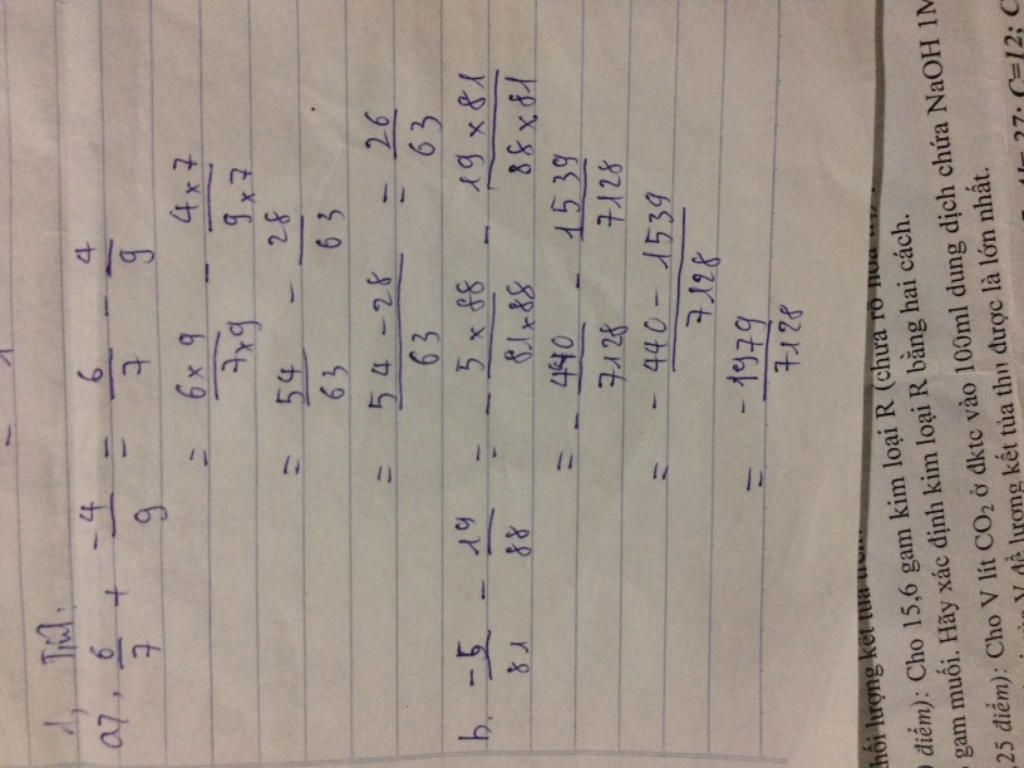 1, Tính.
a, 6/7 + -4/9 = 6/7 - 4/9
= 6×9/7×9 - 4×7/9×7
= 54/63 - 28/63
= 54-28/63 = 26/63
b. -5/81 - 19/88 = - 5×88/81×88 - 19×81/88×81
= - 440/7128 - 1539/7128
= - 440-1539/7128
= -1979/7128
khối lượng kết tủa
điểm): Cho 15,6 gam kim loại R (chưa rõ hóa
gam muối. Hãy xác định kim loại R bằng hai cách.
,25 điểm): Cho V lít CO₂ ở đktc vào 100ml dung dịch chứa NaOH 1M
V để lượng kết tủa thu được là lớn nhất.
27; C=12;